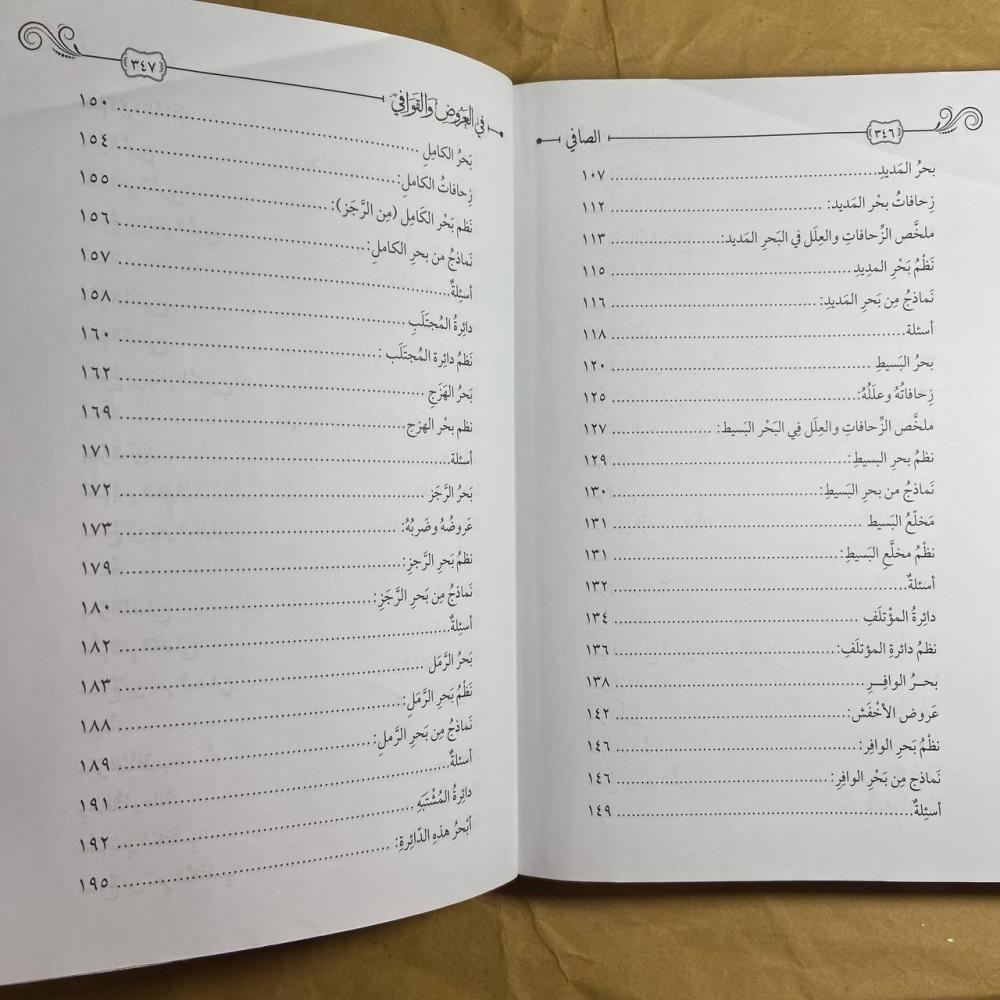 ٣٤٦ الصافي
بحرُ المَديدِ .......... ١٠٧
زِحافاتُ بحْر المَديد: .......... ١١٢
ملخَّص الزِّحافاتِ والعِلَل في البَحر المَديد: .......... ١١٣
نَظْمُ بَحْرِ المدِيدِ .......... ١١٥
نَماذجُ مِن بَحرِ المَديدِ: .......... ١١٦
أسئلة .......... ١١٨
بحرُ البَسيطِ .......... ١٢٠
زِحافاتُهُ وعلَلُهُ: .......... ١٢٥
ملخَّص الزِّحافاتِ والعِلَل فِي البَحْر البَسيط: .......... ١٢٧
نظمُ بحرِ البسيطِ: .......... ١٢٩
نَماذجُ من بحرِ البَسيطِ: .......... ١٣٠
مَخلّعُ البَسيط .......... ١٣١
نظْمُ مخلَّعِ البَسيطِ: .......... ١٣١
أسئلةٌ .......... ١٣٢
دائِرةُ المؤْتلَفِ .......... ١٣٤
نظمُ دائرةِ المؤتلَفِ: .......... ١٣٦
بحــرُ الوافِــرِ .......... ١٣٨
عَروض الأخْفَش: .......... ١٤٢
نظْمُ بَحرِ الوافِر: .......... ١٤٦
نَماذج مِن بَحْرِ الوافِرِ: .......... ١٤٦
أسئِلةٌ .......... ١٤٩
في العَروضِ والقَوَافِي ٣٤٧
بَحرُ الكامِلِ .......... ١٥٠
زِحافاتُ الكاملِ: .......... ١٥٤
نَظم بَحْر الكَامِل (مِن الرَّجَز): .......... ١٥٥
نَماذجُ من بحرِ الكاملِ: .......... ١٥٦
أسئِلةٌ .......... ١٥٧
دائِرةُ المُجتَلَبِ .......... ١٥٨
نَظمُ دائِرة المُجتَلَب : .......... ١٦٠
بَحرُ الهَزَجِ .......... ١٦٢
نظم بحْر الهزج .......... ١٦٩
أسئلة .......... ١٧١
بَحرُ الرَّجَز .......... ١٧٢
عَروضُهُ وضَربُهُ: .......... ١٧٣
نظمُ بَحرِ الرَّجزِ: .......... ١٧٩
نَماذجُ مِن بَحرِ الرَّجَزِ: .......... ١٨٠
أسئِلةٌ .......... ١٨٢
بَحرُ الرَّمَل .......... ١٨٣
نَظْمُ بَحرِ الرَّمَلِ: .......... ١٨٨
نَماذجُ مِن بَحرِ الرَّملِ: .......... ١٨٩
أسئلةٌ .......... ١٩١
دائِرةُ المُشْتبَهِ .......... ١٩٢
أبْحرُ هذهِ الدّائِرةِ: .......... ١٩٥